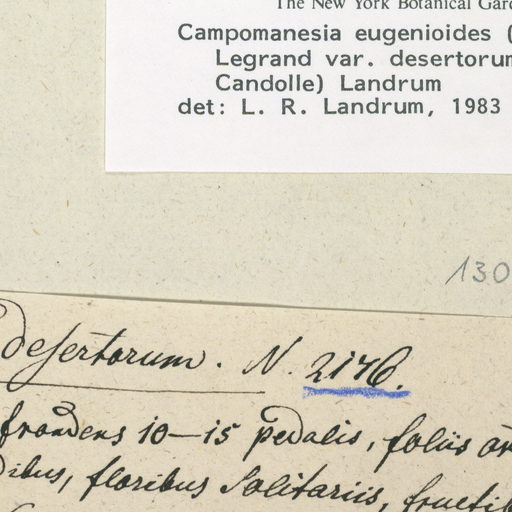 The New York Botanical Gard
Campomanesia eugenioides (
Legrand var. desertorum
Candolle) Landrum
det: L. R. Landrum, 1983
130
desertorum. N. 2176.
frondens 10-15 pedalis, foliis
dibus, floribus solitariis,